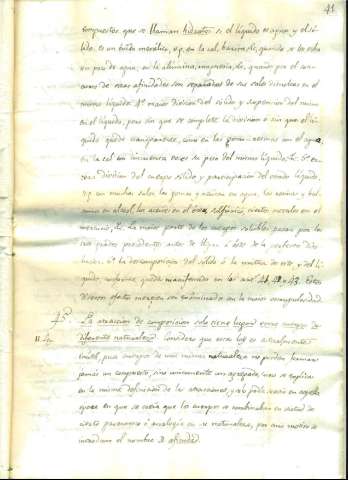 41
compuestos que se llaman hidratos si el líquido es agua, y el só-
lido es un óxido metálico, v.g. en la cal, barita &c, quando se les echa
un poco de agua; en la alúmina, magnesia, &c, quando por el
de unas afinidades son separadas de sus sales disueltas en el
mismo líquido. 4º maior división del sólido y suspensión del mismo
en el líquido, pero sin que se complete la división o sin que el lí-
quido quede transparente, como en las gomo-resinas con el agua,
en la cal con cincuenta veces su peso del mismo líquido &c. 5º
división del cuerpo sólido y participación del estado líquido,
v.g. en muchas sales, las gomas y azúcar en agua, las resinas y bál-
samos en alcohol, los aceites en el éter sulfúrico, ciertos metales en el
mercurio, &c. La maior parte de los cuerpos solubles pasan por los
tres grados precedentes antes de llegar a éste de la perfecta diso-
lución. 6º La descomposición del sólido o la mutua de este, y del lí-
quido, conforme queda manifestado en los nos. 41, 42 y 43. Estos
diversos efectos merecen ser examinados con la maior escrupulosidad.
45º
La atracción de composición solo tiene lugar entre cuerpos de
diferente naturaleza. Considero que esta ley es absolutamente
inútil, pues cuerpos de una misma naturaleza no pueden formar
jamás un compuesto, sino unicamente un agregado, como se explica
en la misma definición de las atracciones, y solo podía servir en aquella
época en que se creía que los cuerpos se combinaban en virtud de
cierto parentesco o analogía en su naturaleza, por cuio motivo se
introduxo el nombre de afinidad.